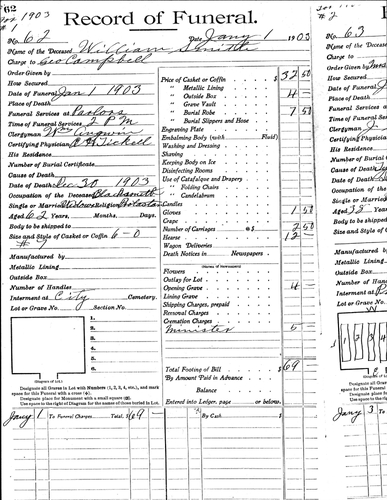 62
1903
# 1
Record of Funeral.
No. 62 Date Jany 1 1903
Name of the Deceased William Smith
Charge to Geo Campbell
Order Given by
How Secured
Date of Funeral Jan 1 1903
Place of Death
Funeral Services at Parlors
Time of Funeral Services 2 PM
Clergyman Wm
Certifying Physician Tickell
His Residence
Number of Burial Certificate
Cause of Death
Date of Death Dec 30 1903
Occupation of the Deceased Blacksmith
Single or Married Widower Religion
Aged 62 Years, Months, Days.
Body to be shipped to
Size and Style of Casket or Coffin 6-0
# 9
Manufactured by
Metallic Lining
Outside Box
Number of Handles
Interment at City Cemetery.
Lot or Grave No. Section No.
1.
2.
3.
4.
5.
6.
(Diagram of Lot.)
Designate all Graves in Lot with Numbers (1, 2, 3, 4, etc.), and mark
space for this Funeral with a cross
Designate place for Monument with a small square
Use space to the right of Diagram for the names of those buried in Lot.
Jany 1 To Funeral Charges Total, $ 69
Price of Casket or Coffin $ 32 50
" Metallic Lining
" Outside Box 4 —
" Grave Vault
" Burial Robe 7 50
" Burial Slippers and Hose
Engraving Plate
Embalming Body (with Fluid)
Washing and Dressing
Shaving
Keeping Body on Ice
Disinfecting Rooms
Use of Catafalque and Drapery
" Folding Chairs
" Candelabrum
Candles
Gloves 1 50
Crape
Number of Carriages @ $ 2 50
Hearse 12 —
Wagon Deliveries
Death Notices in Newspapers
Flowers
Outlay for Lot
Opening Grave 4 —
Lining Grave
Shipping Charges, prepaid
Removal Charges
Cremation Charges
Minister 5 —
Total Footing of Bill $ 69
By Amount Paid in Advance
Balance
Entered into Ledger, page or below.
By Cash $
# 2
No. 63
Name of the Deceased
Charge to
Order Given by
How Secured
Date of Funeral
Place of Death
Funeral Services at
Time of Funeral
Clergyman J
Certifying Physician
His Residence
Number of Burial
Cause of Death
Date of Death
Occupation of the
Single or Married
Aged 38 Years,
Body to be shipped to
Size and Style of
Manufactured by
Metallic Lining
Outside Box
Number of Handles
Interment at
Lot or Grave No.
1 2 3 4
(Diagram of Lot.)
Designate all Graves
space for this Funeral
Designate place for
Use space to the right
Jany 3 To